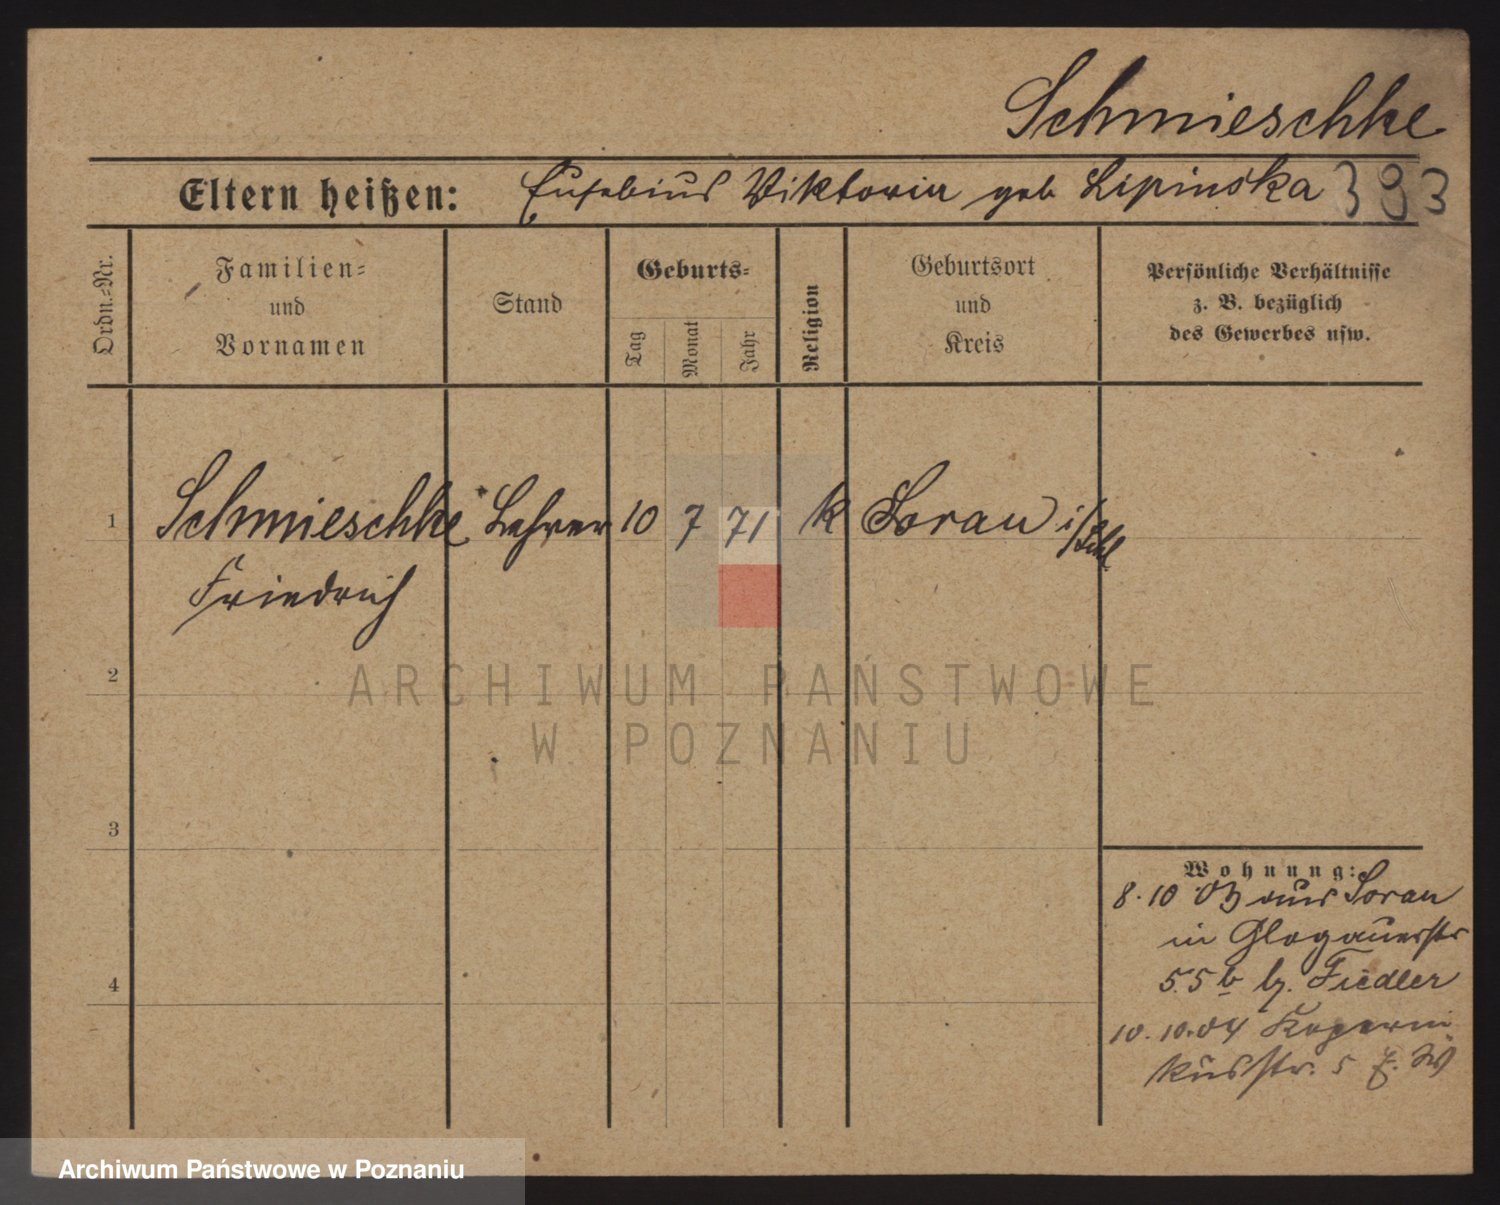 Schmieschke
Eltern heißen: Eusebius Viktoria geb Lipinska 383
Ordn.=Nr.
Familien=
und
Vornamen
Stand
Geburts=
Tag
Monat
Jahr
Religion
Geburtsort
und
Kreis
Persönliche Verhältnisse
z. B. bezüglich
des Gewerbes usw.
1 Schmieschke Lehrer 10 7 71 k Sorau i/Schl
Friedrich
2
3
4
Wohnung:
8.10 03 aus Sorau
in Glogauerstr
55b b. Fiedler
10.10.04 Koperni
kusstr. 5
ARCHIWUM PAŃSTWOWE
W POZNANIU
Archiwum Państwowe w Poznaniu